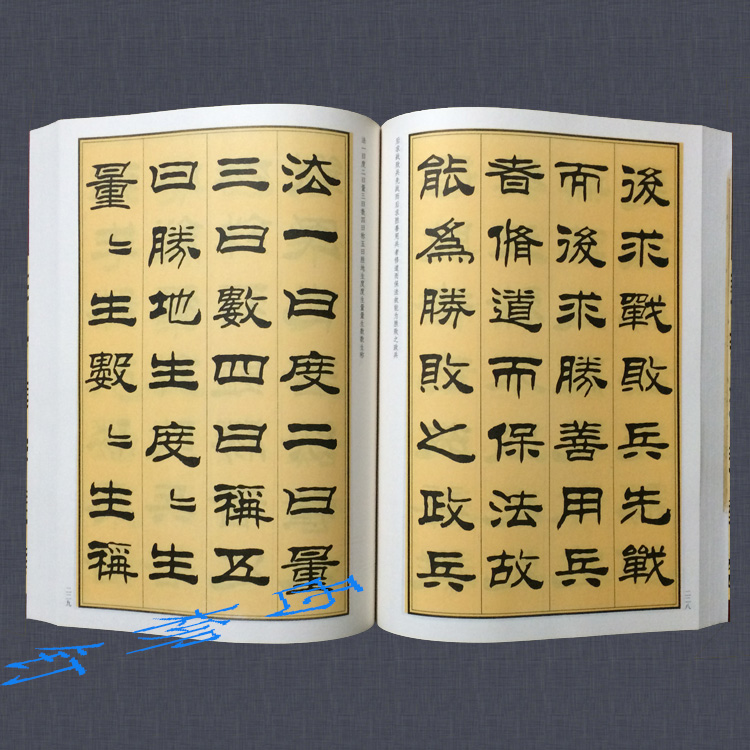 後求戰敗兵先戰
而後求勝善用兵
者脩道而保法故
能爲勝敗之政兵
二二八
法一曰度二曰量
三曰數四曰稱五
曰勝地生度〻生
量〻生數〻生稱
二二九